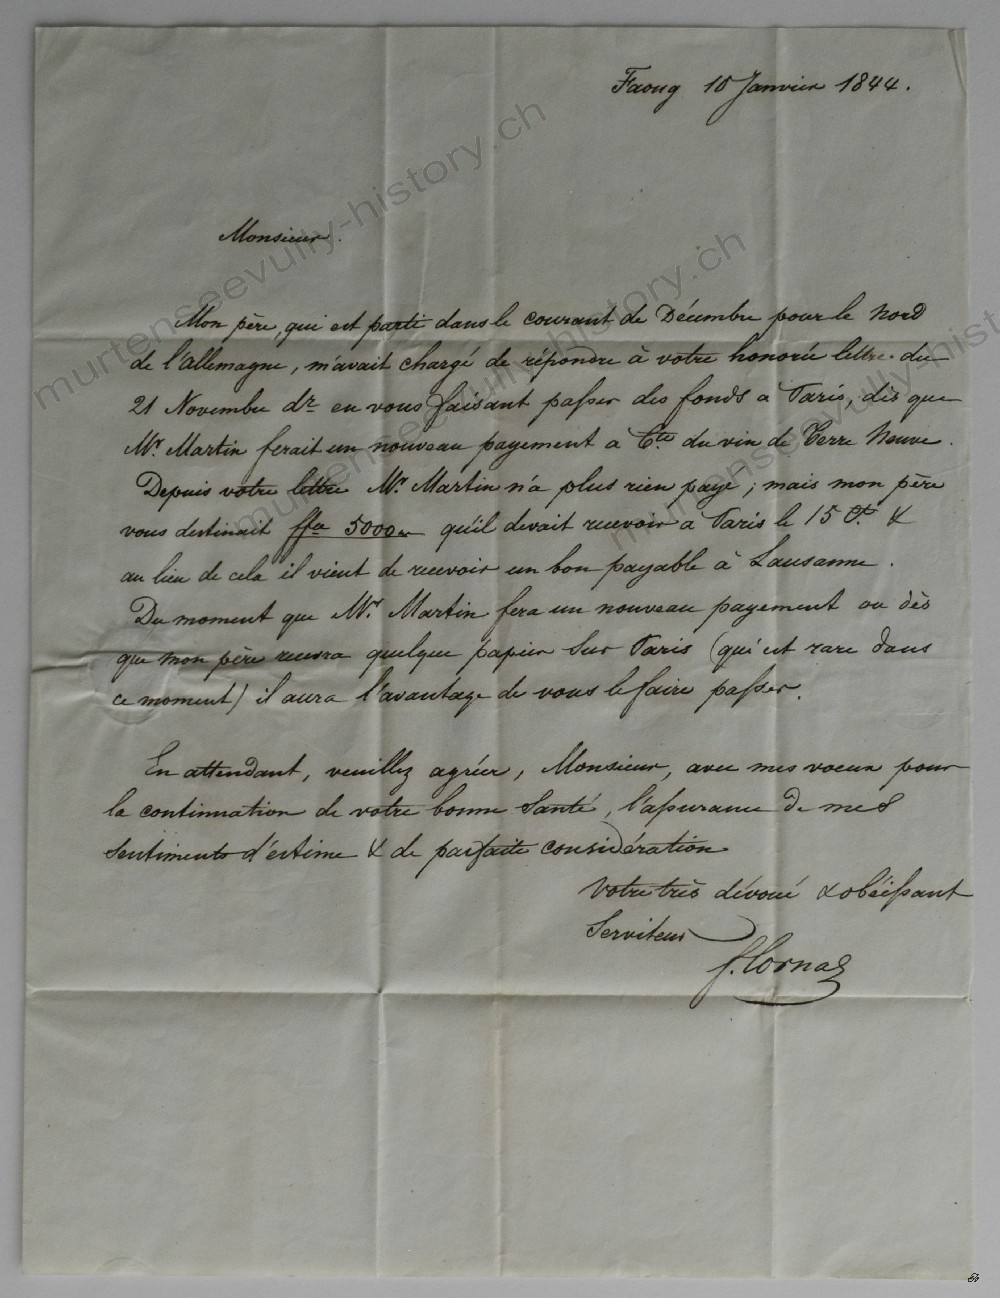 Faoug 10 Janvier 1844.
Monsieur.
Mon père, qui est parti dans le courant de Décembre pour le Nord
de l'Allemagne, m'avait chargé de répondre à votre honorée lettre du
21 Novembre dr. en vous faisant passer des fonds à Paris, dès que
Mr. Martin ferait un nouveau payement à Cte. du vin de Terre Neuve.
Depuis votre lettre Mr. Martin n'a plus rien payé ; mais mon père
vous destinait ffcs 5000 qu'il devait recevoir à Paris le 15 Ct. &
au lieu de cela il vient de recevoir un bon payable à Lausanne.
Du moment que Mr. Martin fera un nouveau payement ou dès
que mon père recevra quelque papier sur Paris (qui est rare dans
ce moment) il aura l'avantage de vous le faire passer.
En attendant, veuillez agréer, Monsieur, avec mes voeux pour
la continuation de votre bonne santé, l'assurance de mes
sentiments d'estime & de parfaite considération
Votre très dévoué & obéissant
Serviteur
f. Cornaz
murtenseevully-history.ch
murtenseevully-history.ch
murtenseevully-history.ch